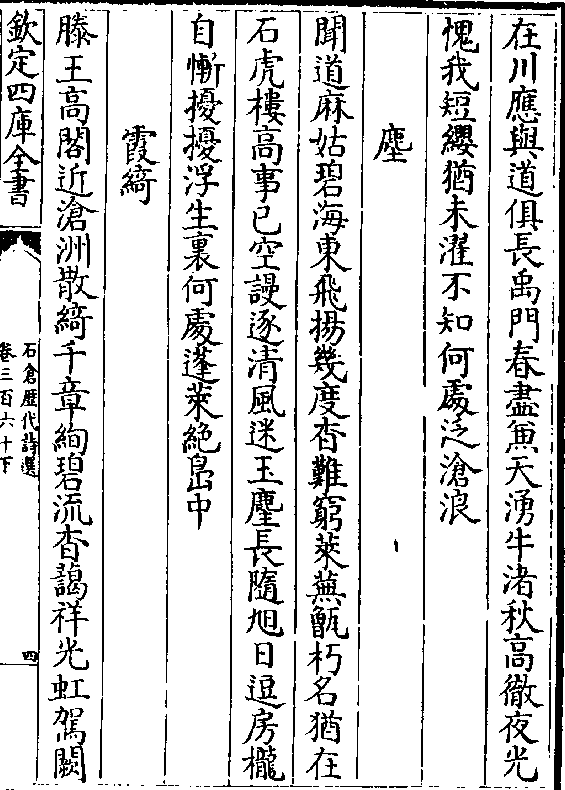 在川應與道俱長禹門春盡兼天湧牛渚秋高徹夜光
愧我短纓猶未濯不知何處泛滄浪
塵
聞道麻姑碧海東飛揚幾度杳難窮萊蕪甑朽名猶在
石虎樓高事已空謾逐清風迷玉麈長隨旭日逗房櫳
自慚擾擾浮生裏何處蓬萊絶島中
霞綺
滕王高閣近滄洲散綺千章絢碧流杳靄祥光虹駕闕
欽定四庫全書
石倉歷代詩選
卷三百六十下
四